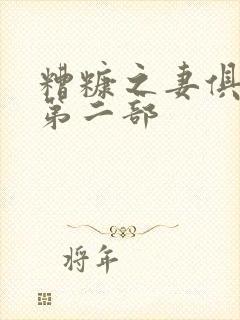 糟糠之妻俱
第二部
将年